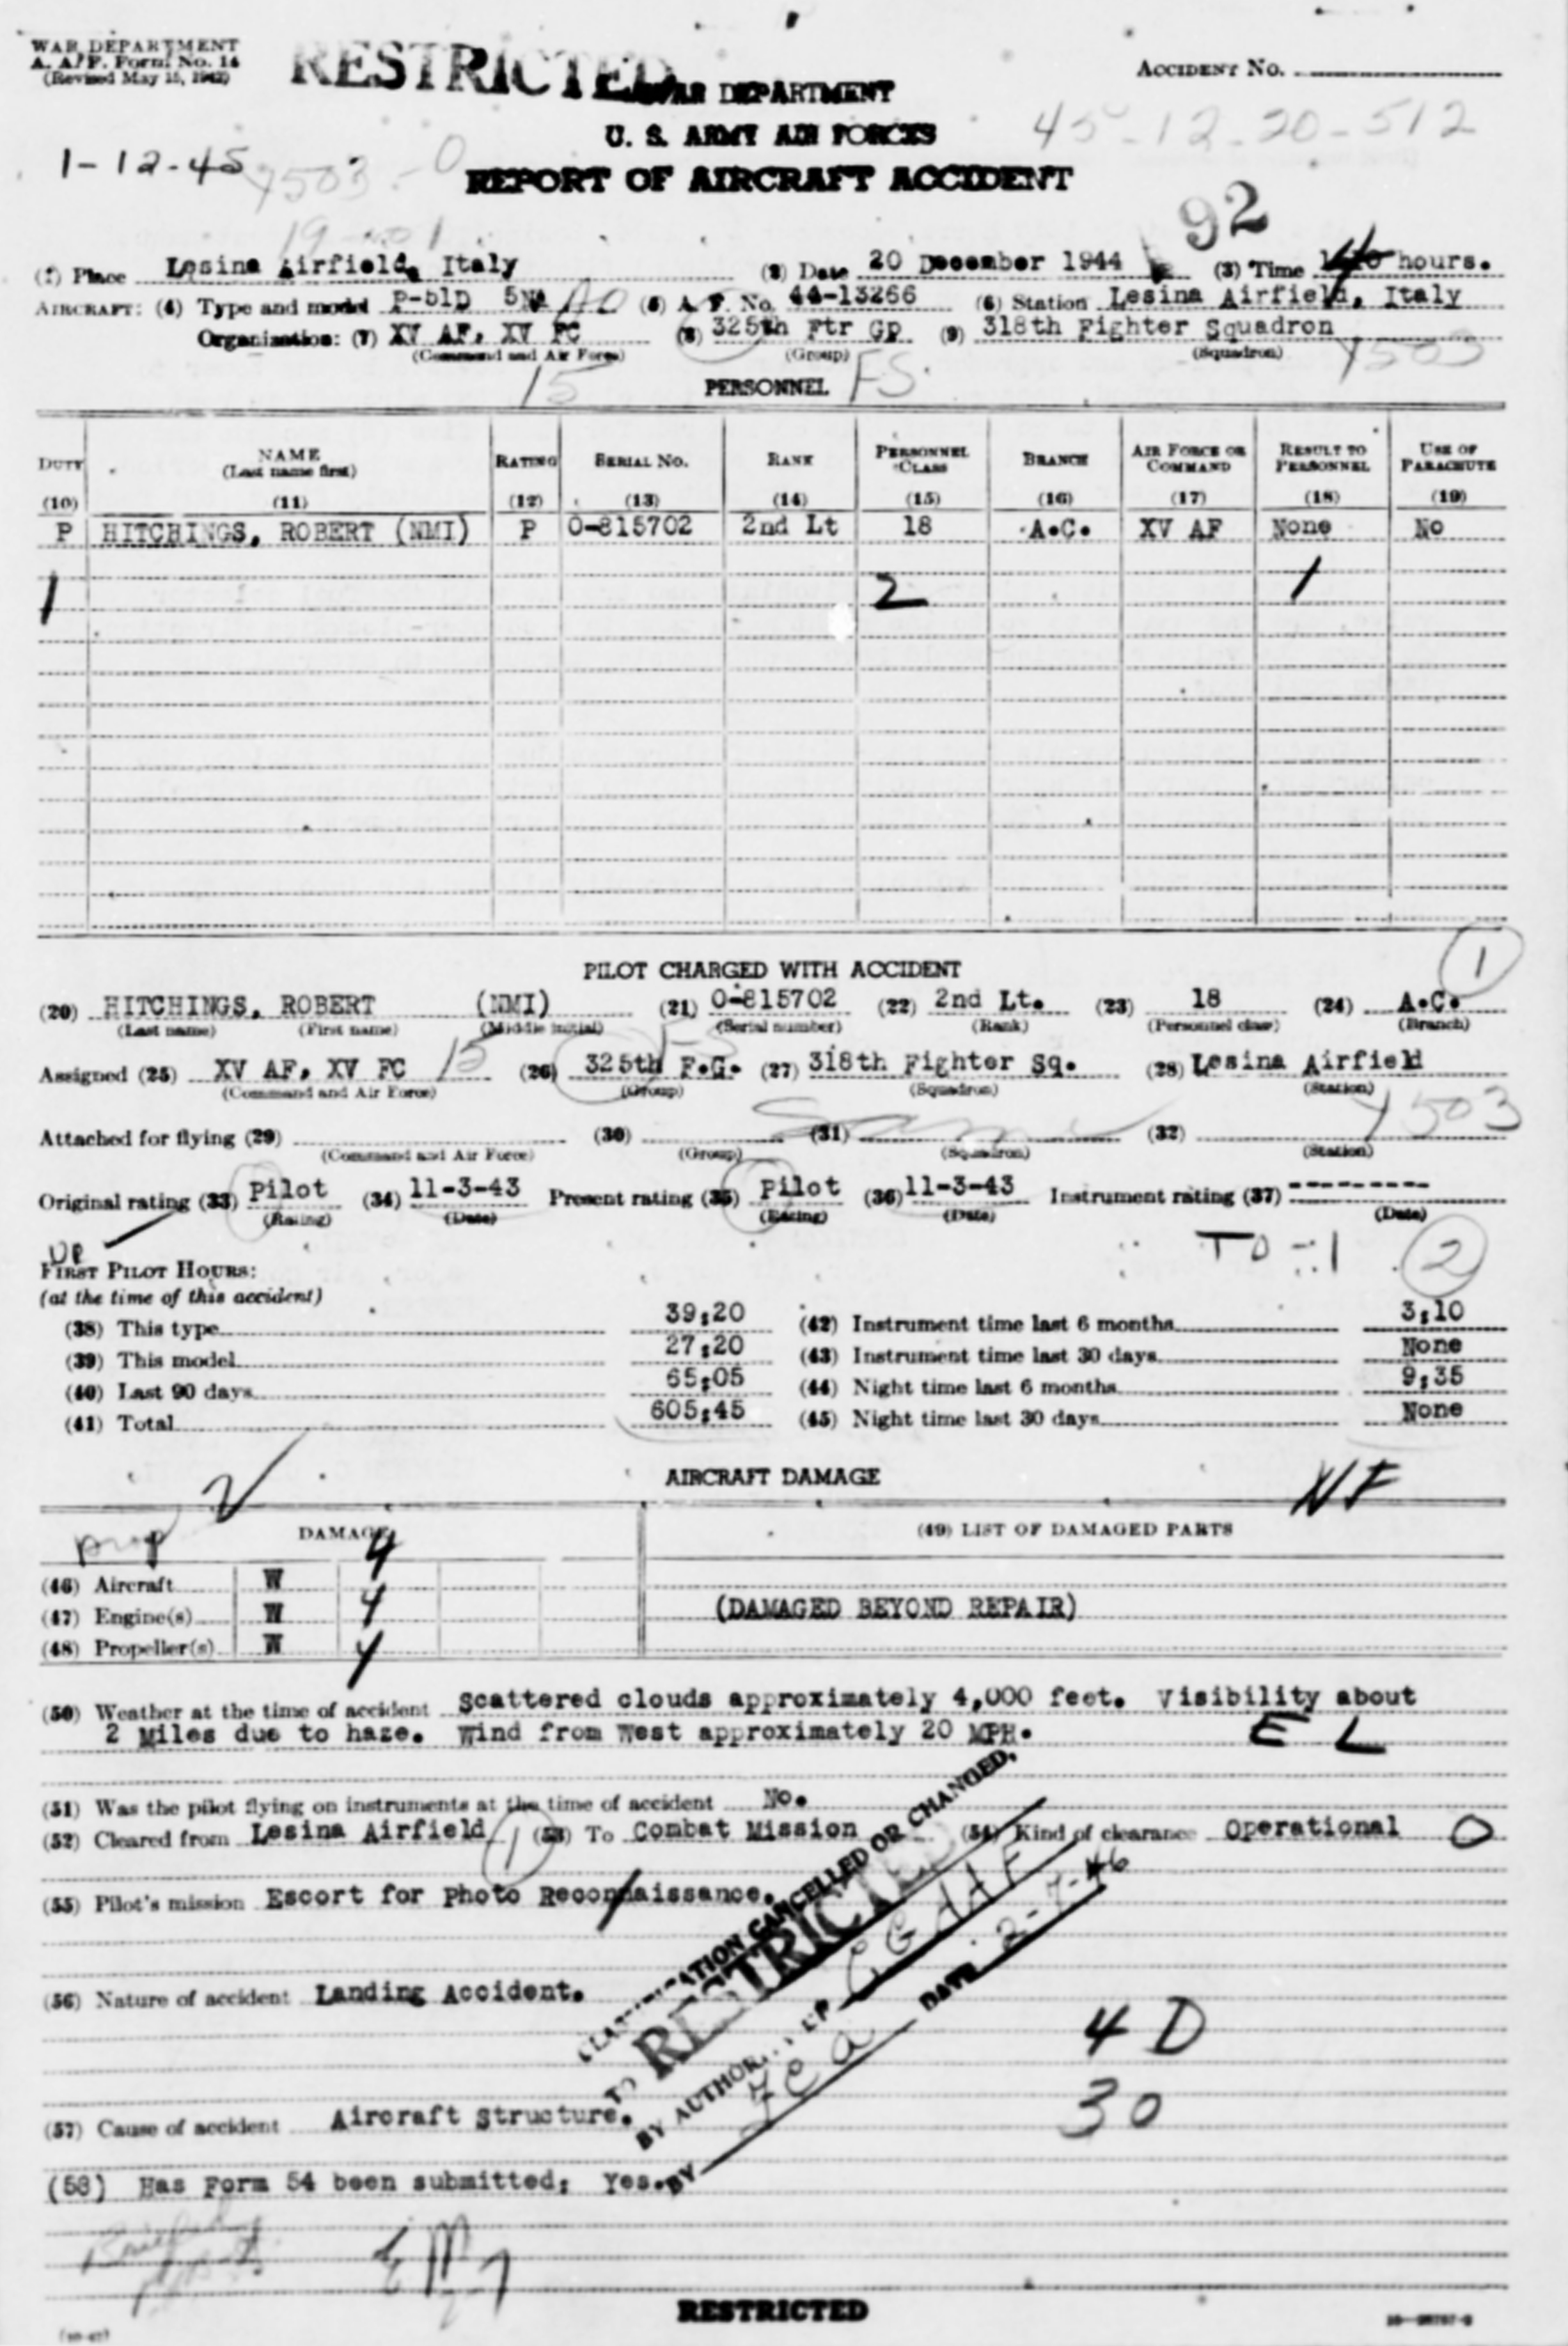 WAR DEPARTMENT
A. A. F. Form No. 14
(Revised May 15, 1942)
RESTRICTED
ACCIDENT No.
WAR DEPARTMENT
U. S. ARMY AIR FORCES
45-12-20-512
1-12-45
REPORT OF AIRCRAFT ACCIDENT
92
(1) Place Lesina Airfield, Italy (2) Date 20 December 1944 (3) Time hours.
AIRCRAFT: (4) Type and model P-51D 5NA (5) A. F. No. 44-13266 (6) Station Lesina Airfield, Italy
Organization: (7) XV AF, XV FC (8) 325th Ftr Gp (9) 318th Fighter Squadron
(Command and Air Force) (Group) (Squadron) Y503
15 PERSONNEL FS.
DUTY NAME (Last name first) RATING SERIAL NO. RANK PERSONNEL CLASS BRANCH AIR FORCE OR COMMAND RESULT TO PERSONNEL USE OF PARACHUTE
(10) (11) (12) (13) (14) (15) (16) (17) (18) (19)
P HITCHINGS, ROBERT (NMI) P O-815702 2nd Lt 18 A.C. XV AF None No
1 2 1
PILOT CHARGED WITH ACCIDENT 1
(20) HITCHINGS, ROBERT (NMI) (21) O-815702 (22) 2nd Lt. (23) 18 (24) A.C.
(Last name) (First name) (Middle initial) (Serial number) (Rank) (Personnel class) (Branch)
Assigned (25) XV AF, XV FC 15 (26) 325th F.G. (27) 318th Fighter Sq. (28) Lesina Airfield
(Command and Air Force) (Group) (Squadron) (Station)
Y503
Attached for flying (29) (30) (31) (32)
(Command and Air Force) (Group) (Squadron) (Station)
Original rating (33) Pilot (34) 11-3-43 Present rating (35) Pilot (36) 11-3-43 Instrument rating (37) ---------
(Rating) (Date) (Rating) (Date) (Date)
TO-1 2
FIRST PILOT HOURS:
(at the time of this accident)
(38) This type 39:20 (42) Instrument time last 6 months 3:10
(39) This model 27:20 (43) Instrument time last 30 days None
(40) Last 90 days 65:05 (44) Night time last 6 months 9:35
(41) Total 605:45 (45) Night time last 30 days None
AIRCRAFT DAMAGE
NF
prop DAMAGE 4 (49) LIST OF DAMAGED PARTS
(46) Aircraft W 4
(47) Engine(s) W 4 (DAMAGED BEYOND REPAIR)
(48) Propeller(s) W
(50) Weather at the time of accident Scattered clouds approximately 4,000 feet. Visibility about
2 Miles due to haze. Wind from West approximately 20 MPH. E L
(51) Was the pilot flying on instruments at the time of accident No.
(52) Cleared from Lesina Airfield 1 (53) To Combat Mission (54) Kind of clearance Operational O
(55) Pilot's mission Escort for Photo Reconnaissance.
CLASSIFICATION CANCELLED OR CHANGED,
TO RESTRICTED
BY AUTHORITY OF CG AAF
BY JCA DATE 2-7-46
(56) Nature of accident Landing Accident.
4 D
30
(57) Cause of accident Aircraft Structure.
(58) Has Form 54 been submitted: Yes.
RESTRICTED